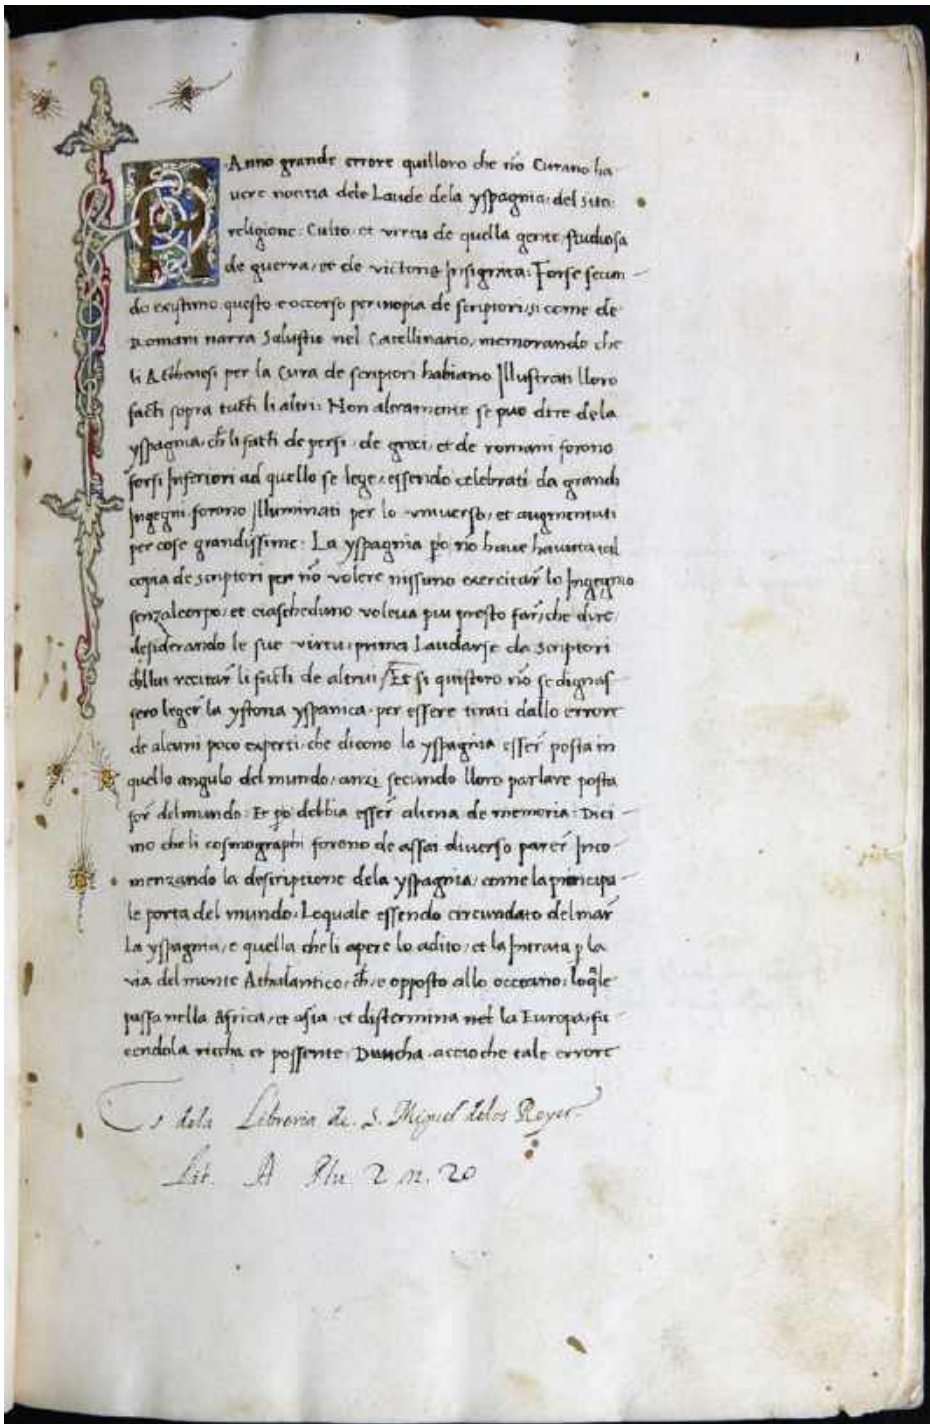 1
HAnno grande errore quilloro che nō Curano ha
uere noticia dele Laude dela yspagnia, del sito.
religione: Culto et virtu de quella gente studiosa
de guerra, et de victorie Insignita: Forse secun
do existimo questo e occorso per inopia de scriptori, si come de
Romani narra Salustio nel Catellinario, memorando che
li Athenesi per la Cura de scriptori habiano Illustrati lloro
facti sopra tucti li altri: Non altramente se puo dire de la
yspagnia, ch̄ li facti de persi, de greci, et de romani forono
forsi Inferiori ad quello se lege, essendo celebrati da grandi
Ingegni forono Illuminati per lo vniuerso, et augmentati
per cose grandissime: La yspagnia po nō haue hauuta tal
copia de scriptori per nō volere nissuno exercitar̄ lo Ingegnio
senzal corpo, et ciascheduno voleua piu presto far̄, che dire,
desiderando le sue virtu, prima Laudarse da Scriptori
ch̄ llui recitar̄ li facti de altrui, Et si quistoro nō se dignas
sero leger̄ la ystoria yspanica, per essere tirati dallo errore
de alcuni poco experti, che dicono la yspagnia esser̄ posta in
quello angulo del mundo, anzi secundo lloro parlare posta
for̄ del mundo: Et po debbia esser̄ aliena de memoria: Dici
mo che li cosmographi forono de assai diuerso parer̄ Inco
menzando la descriptione dela yspagnia, come la principa
le porta del mundo. Loquale essendo circundato del mar̄
La yspagnia, e quella che li apere lo adito, et la Intrata p la
via del monte Athalantico, ch̄, e opposto allo occeano, loqle
passa nella Africa, et asia et distermina nel la Europa, fa
cendola riccha et possente. Duncha accioche tale errore
Es dela Libreria de S. Miguel delos Reyes
Lit. A Plu 2 n. 20